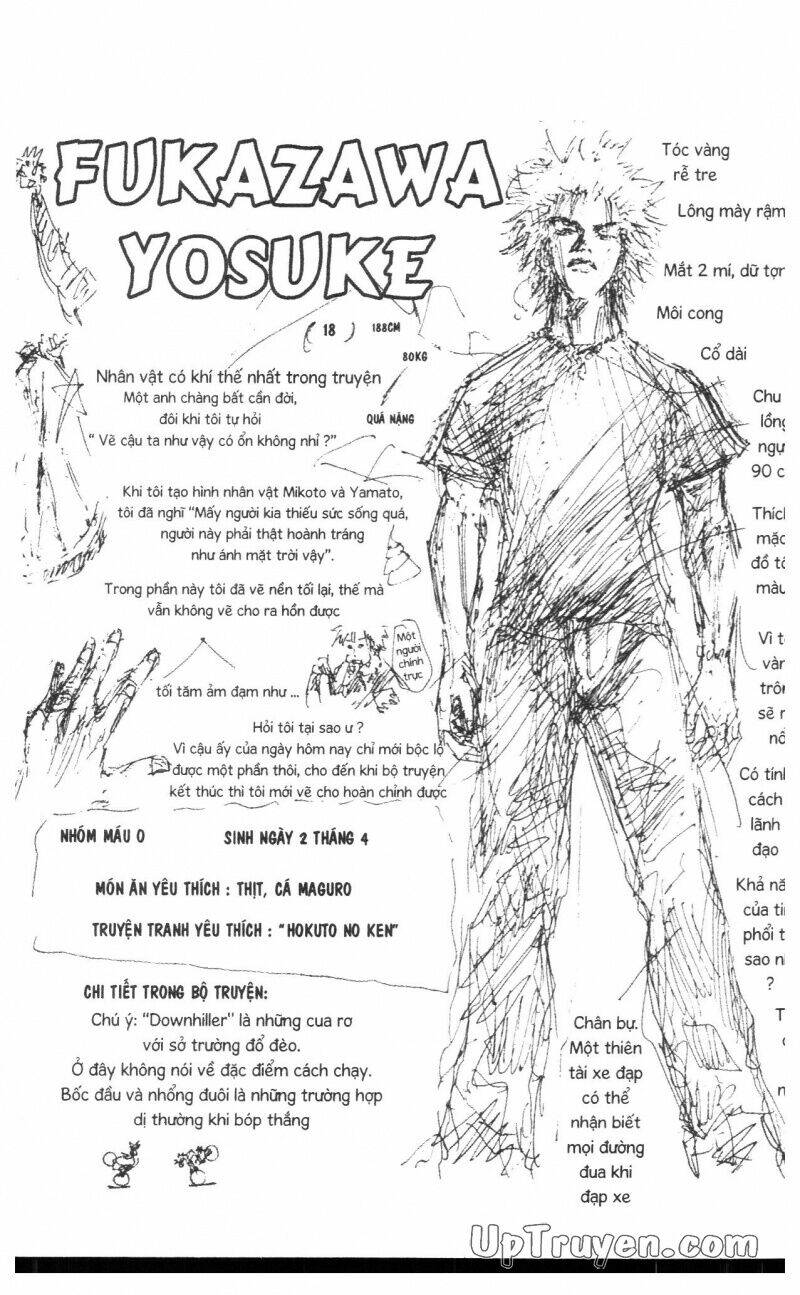 FUKAZAWA
YOSUKE
( 18 )
188CM
80KG
QUÁ NẶNG
Nhân vật có khí thế nhất trong truyện
Một anh chàng bất cần đời,
đôi khi tôi tự hỏi
“ Vẽ cậu ta như vậy có ổn không nhỉ ?”
Khi tôi tạo hình nhân vật Mikoto và Yamato,
tôi đã nghĩ “Mấy người kia thiếu sức sống quá,
người này phải thật hoành tráng
như ánh mặt trời vậy”.
Trong phần này tôi đã vẽ nền tối lại, thế mà
vẫn không vẽ cho ra hồn được
tối tăm ảm đạm như ...
Một
người
chính
trực
Hỏi tôi tại sao ư ?
Vì cậu ấy của ngày hôm nay chỉ mới bộc lộ
được một phần thôi, cho đến khi bộ truyện
kết thúc thì tôi mới vẽ cho hoàn chỉnh được
NHÓM MÁU O
SINH NGÀY 2 THÁNG 4
MÓN ĂN YÊU THÍCH : THỊT, CÁ MAGURO
TRUYỆN TRANH YÊU THÍCH : “HOKUTO NO KEN”
CHI TIẾT TRONG BỘ TRUYỆN:
Chú ý: “Downhiller” là những cua rơ
với sở trường đổ đèo.
Ở đây không nói về đặc điểm cách chạy.
Bốc đầu và nhổng đuôi là những trường hợp
dị thường khi bóp thắng
Tóc vàng
rễ tre
Lông mày rậm
Mắt 2 mí, dữ tợn
Môi cong
Cổ dài
Chu
lồng
ngự
90 c
Thích
mặc
đồ tố
màu
Vì t
vàn
trôn
sẽ r
nổ
Có tính
cách
lãnh
đạo
Khả nă
của ti
phổi t
sao n
?
Chân bự.
Một thiên
tài xe đạp
có thể
nhận biết
mọi đường
đua khi
đạp xe
UpTruyen.com